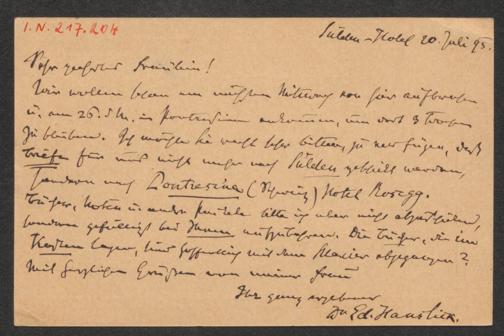 I.N. 217.204
Sulden-Hotel 20. Juli 95.
Sehr geehrtes Fräulein!
Wir wollen schon am nächsten Mittwoch von hier aufbrechen
u. am 26. d. M. in Pontresina ankommen, um dort 3 Wochen
zu bleiben. Ich möchte Sie recht sehr bitten, zu verfügen, daß
Briefe für uns nicht mehr nach Sulden geschickt werden,
sondern nach Pontresina (Schweiz) Hotel Rosegg.
Bücher, Noten u. andre Packete bitte ich aber nicht abzuschicken,
sondern gefälligst bei aufzubewahren. Die Bücher, die im
lagen, sind hoffentlich mit dem Klavier abgegangen?
Mit herzlichen Grüßen von meiner Frau
Ihr ganz ergebener
Dr Ed. Hanslick.